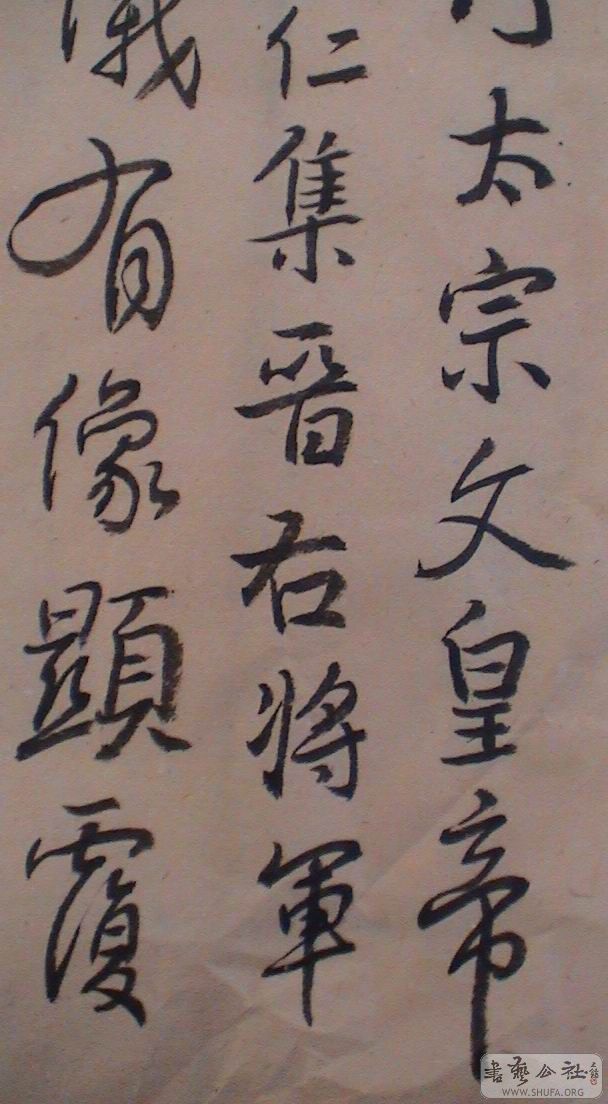 太宗文皇帝
仁集晋右将軍
儀有像顯覆
書藝公社
WWW.SHUFA.ORG